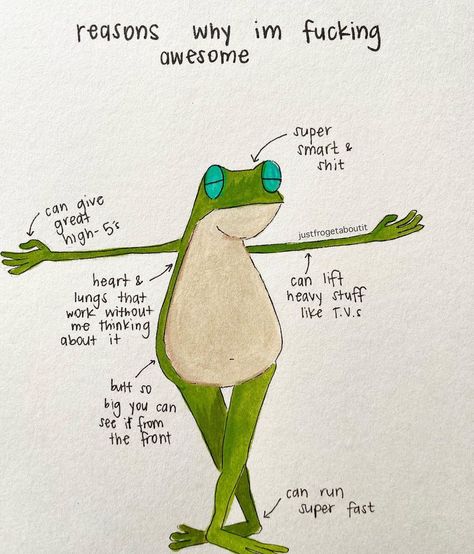 reasons why im fucking
awesome
super
smart &
shit
can give
great
high-5's
justfrogetaboutit
heart &
lungs that
work without
me thinking
about it
can lift
heavy stuff
like T.V.s
butt so
big you can
see it from
the front
can run
super fast